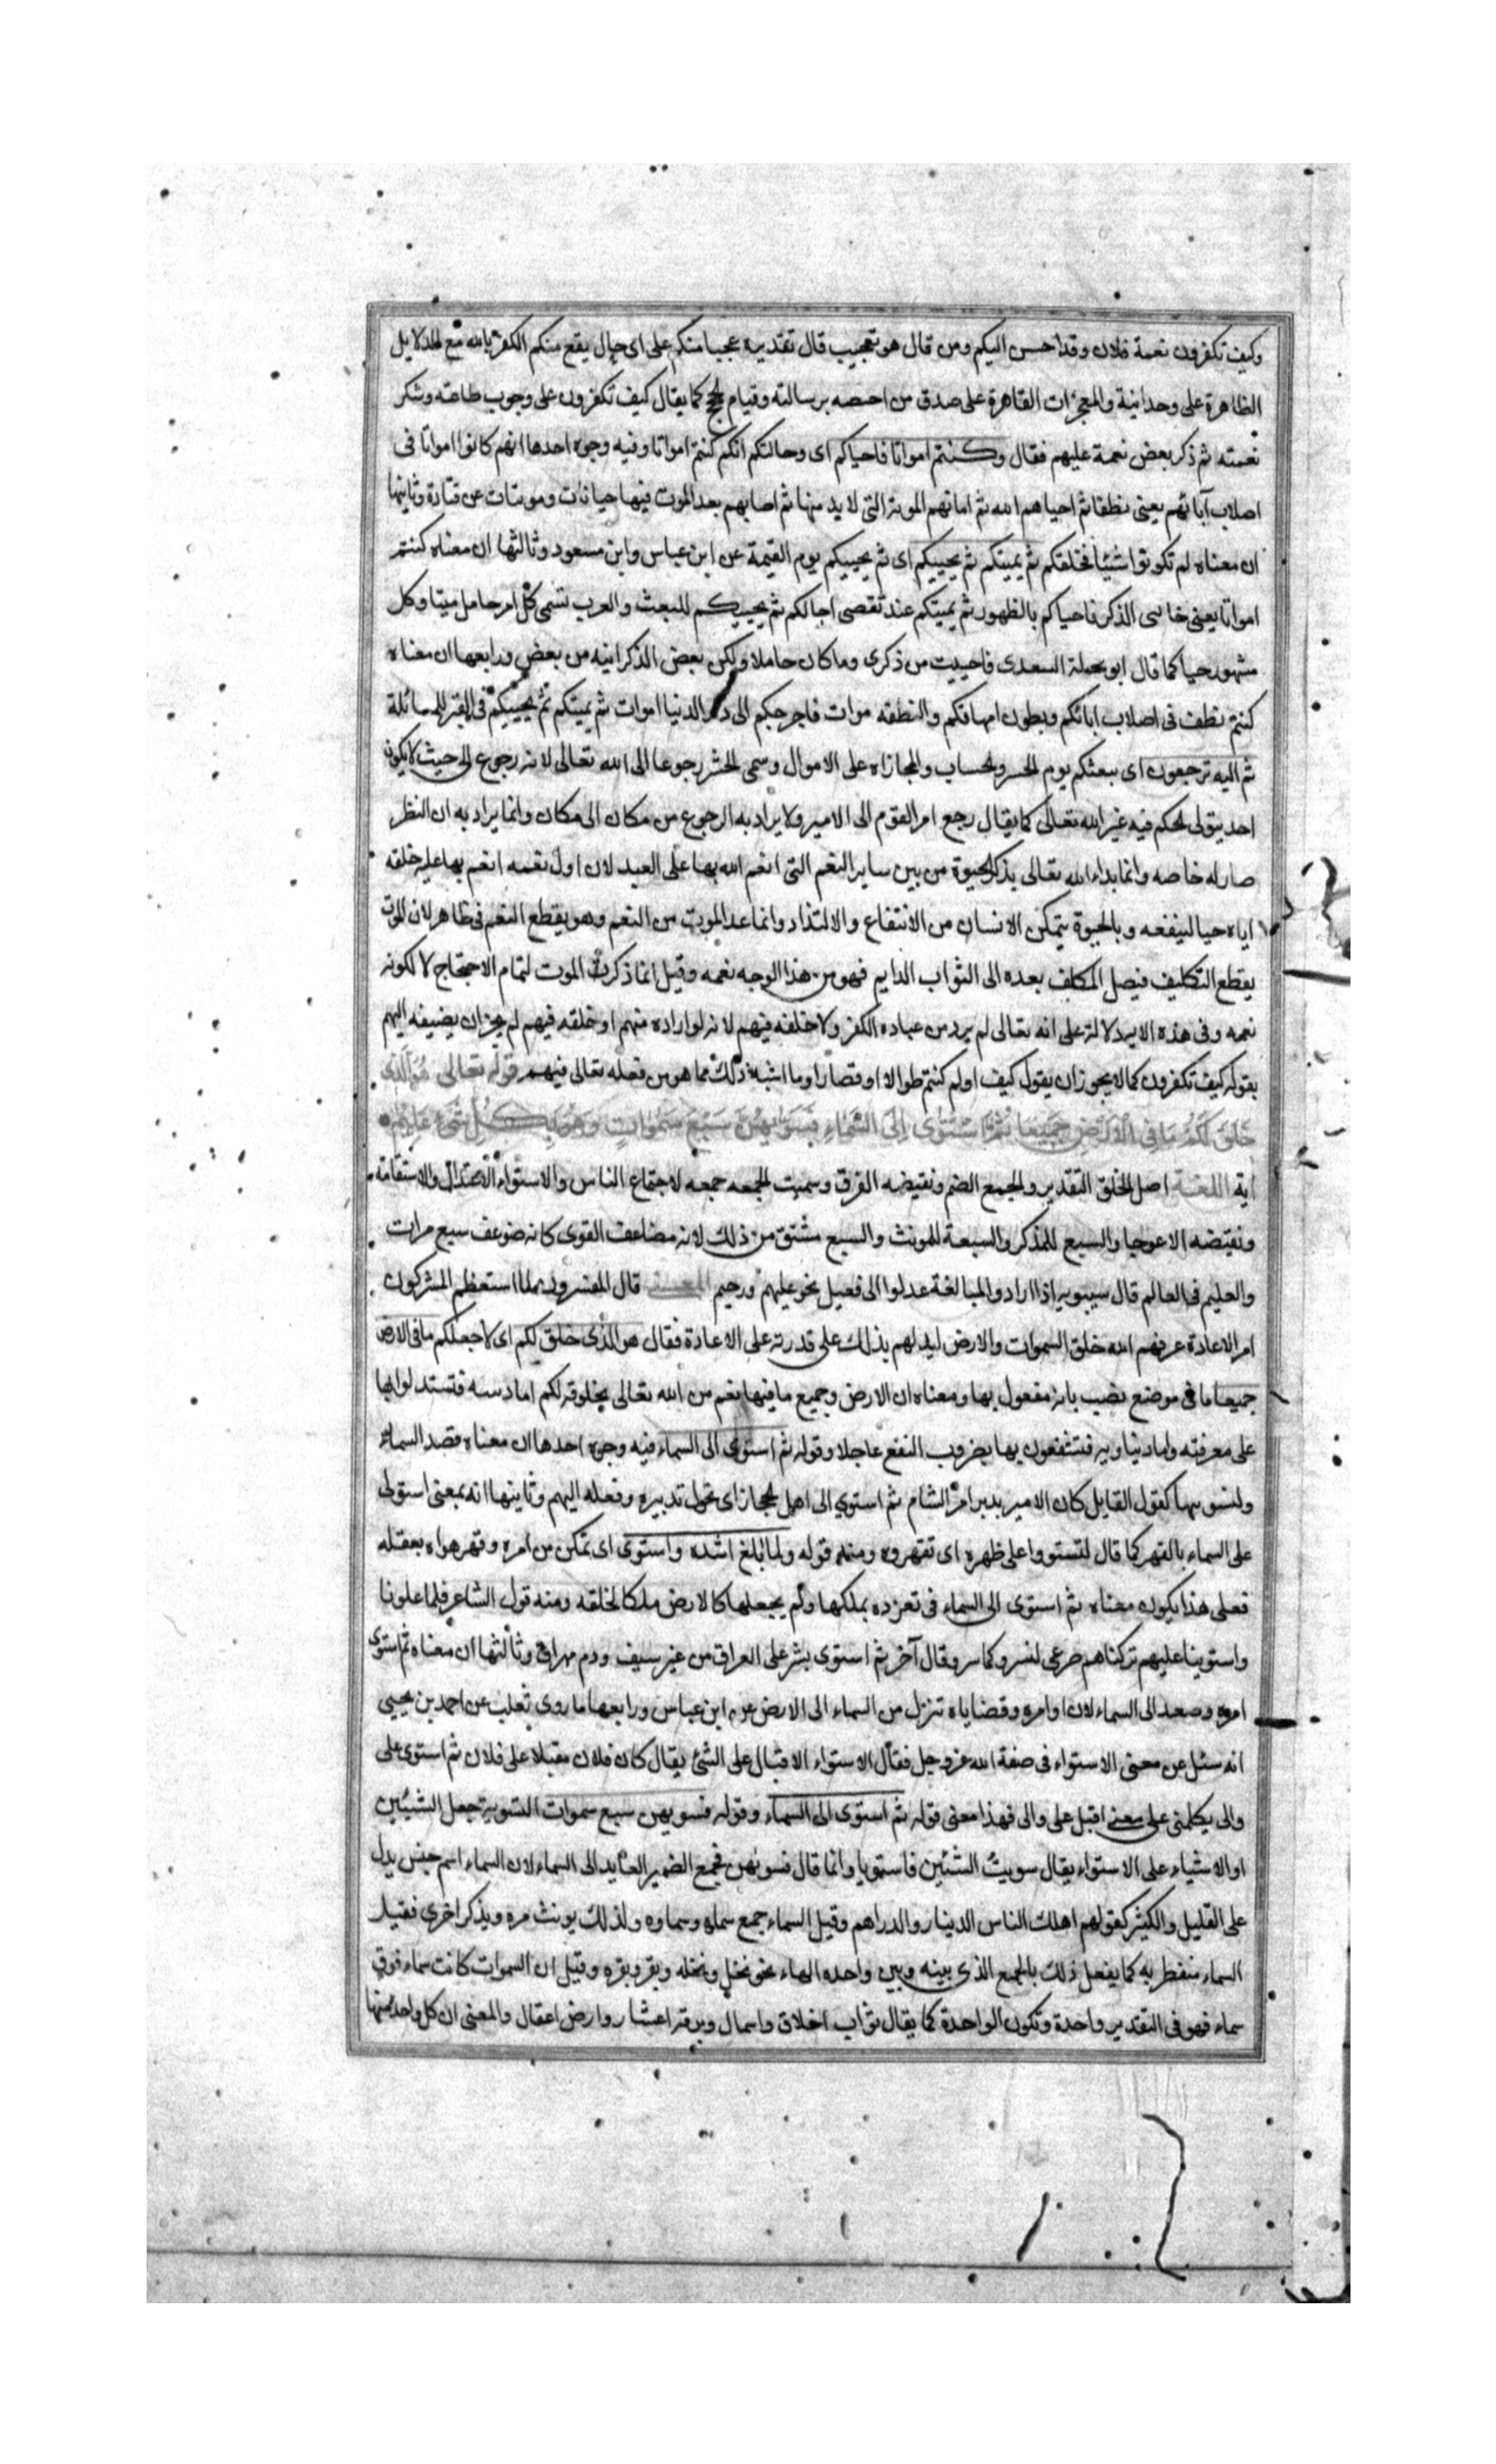 وكيف تكفرون نعمة فلان وقد احسن اليكم ومن قال هو تعجيب قال تقديره عجبا منكم على اى حال يقع منكم الكفر بالله مع الدلايل
الظاهرة على وحدانية والمعجزات القاهرة على صدق من اختصه برسالته وقيام الحجج كما يقال كيف تكفرون على وجوب طاعته وشكر
نعمته ثم ذكر بعض نعمة عليهم فقال وكنتم امواتا فاحياكم اى وحالتكم انكم كنتم امواتا وفيه وجوه احدها انهم كانوا امواتا فى
اصلاب آبائهم يعنى نطفا ثم احياهم الله ثم اماتهم الموتة التى لا بد منها ثم احياهم بعد الموت فيها حياتات وموتتات عن قتادة وثانيها
ان معناه لم تكونوا شيئا فخلقكم ثم يميتكم ثم يحييكم اى ثم يحييكم يوم القيمة عن ابن عباس وابن مسعود وثالثها ان معناه كنتم
امواتا يعنى خاملى الذكر فاحياكم بالظهور ثم يميتكم عند تقضى اجالكم ثم يحييكم للبعث والعرب تسمى كل امر خامل ميتا وكل
مشهور حيا كما قال ابو نخيلة السعدى فاحييت من ذكرى وما كان خاملا ولكن بعض الذكر انبه من بعض ورابعها ان معناه
كنتم نطفا فى اصلاب ابائكم وبطون امهاتكم والنطفه موات فاخرجكم الى دار الدنيا اموات ثم يميتكم ثم يحييكم فى القبر للمسائلة
ثم اليه ترجعون اى يبعثكم يوم الحشر والحساب والمجازاه على الاموال وسمى الحشر رجوعا الى الله تعالى لانه رجوع الى حيث لا يكون
احد يتولى الحكم فيه غير الله تعالى كما يقال رجع امر القوم الى الامير ولا يراد به الرجوع من مكان الى مكان وانما يراد به ان النظر
صار له خاصه وانما بداء الله تعالى بذكر الحيوة من بين ساير النعم التى انعم الله بها على العبد لان اول نعمه انعم بها عليه خلقه
اياه حيا لينفعه وبالحيوة يتمكن الانسان من الانتفاع والالتذاد وانما عد الموت من النعم وهو يقطع النعم فى ظاهر لان الموت
يقطع التكليف فيصل المكلف بعده الى الثواب الدايم فهو من هذا الوجه نعمه وقيل انما ذكرت الموت لتمام الاحتجاج لا لكونه
نعمه وفى هذه الايه دلالة على انه تعالى لم يرد من عباده الكفر ولا خلقه فيهم لانه لو اراده منهم او خلقه فيهم لم يجز ان يضيفه اليهم
بقوله كيف تكفرون كما لا يجوز ان يقول كيف او لم كنتم طوالا او قصارا وما اشبه ذلك مما هو من فعله تعالى فيهم قوله تعالى هو الذى
خلق لكم ما فى الارض جميعا ثم استوى الى السماء فسويهن سبع سموات وهو بكل شىء عليم
اية اللغة اصل الخلق التقدير والجمع الضم ونقيضه الفرق وسميت الجمعه جمعه لاجتماع الناس والاستواء الاعتدال والاستقامة
ونقيضه الاعوجاج والسبع للمذكر والسبعة للمونث والسبع مشتق من ذلك لانه مضاعف القوى كانه ضوعف سبع مرات
والعليم فى العالم قال سيبويه اذا ارادوا المبالغة عدلوا الى فعيل نحو عليهم ورحيم المعنى قال المفسرون لما استعظم المشركون
امر الاعادة عرفهم الله خلق السموات والارض ليدلهم بذلك على قدرته على الاعادة فقال هو الذى خلق لكم اى لاجلكم ما فى الارض
جميعا ما فى موضع نصب بانه مفعول بها ومعناه ان الارض وجميع ما فيها نعم من الله تعالى مخلوقة لكم اما دينيه فتستدلوا بها
على معرفته واما دنياويه فتنتفعون بها بضروب النفع عاجلا وقوله ثم استوى الى السماء فيه وجوه احدها ان معناه قصد السماء
ولتسويتها كقول القايل كان الامير يدبر امر الشام ثم استوي الى اهل الحجاز اى تحول تدبيره وفعله اليهم وثانيها انه بمعنى استولى
على السماء بالقهر كما قال لتستووا على ظهره اى تقهروه ومنه قوله ولما بلغ اشده واستوى اى تمكن من امره وقهر هواه بعقله
فعلى هذا يكون معناه ثم استوى الى السماء فى تفرده بملكها ولم يجعلها كالارض ملكا لخلقه ومنه قول الشاعر فلما علونا
واستوينا عليهم تركناهم صرعى لنسر وكاسر وقال آخر ثم استوى بشر على العراق من غير سيف ودم مهراق وثالثها ان معناه ثم استوى
امره وصعد الى السماء لان اوامره وقضاياه تنزل من السماء الى الارض عن ابن عباس ورابعها ما روى ثعلب عن احمد بن يحيى
انه سئل عن معنى الاستواء فى صفة الله عز وجل فقال الاستواء الاقبال على الشئ يقال كان فلان مقبلا على فلان ثم استوى على
والى يكلمنى على معنى اقبل على والى فهذا معنى قوله ثم استوى الى السماء وقوله فسويهن سبع سموات التسوية جعل الشيئين
او الاشياء على الاستواء يقال سويت الشيئين فاستويا وانما قال فسوٰهن فجمع الضمير العايد الى السماء لان السماء اسم جنس يدل
على القليل والكثير كقولهم اهلك الناس الدينار والدراهم وقيل السماء جمع سماه وسماوه ولذلك يونث مره ويذكر اخرى فقيل
السماء منفطر به كما يفعل ذلك بالجمع الذى بينه وبين واحده الهاء نحو نخل ونخله وبقر وبقره وقيل ان السموات كانت سماء فوق
سماء فهو فى التقدير واحدة وتكون الواحدة كما يقال ثواب اخلاق واسمال وبرقة اعشار وارض اعقال والمعنى ان كل واحد منها